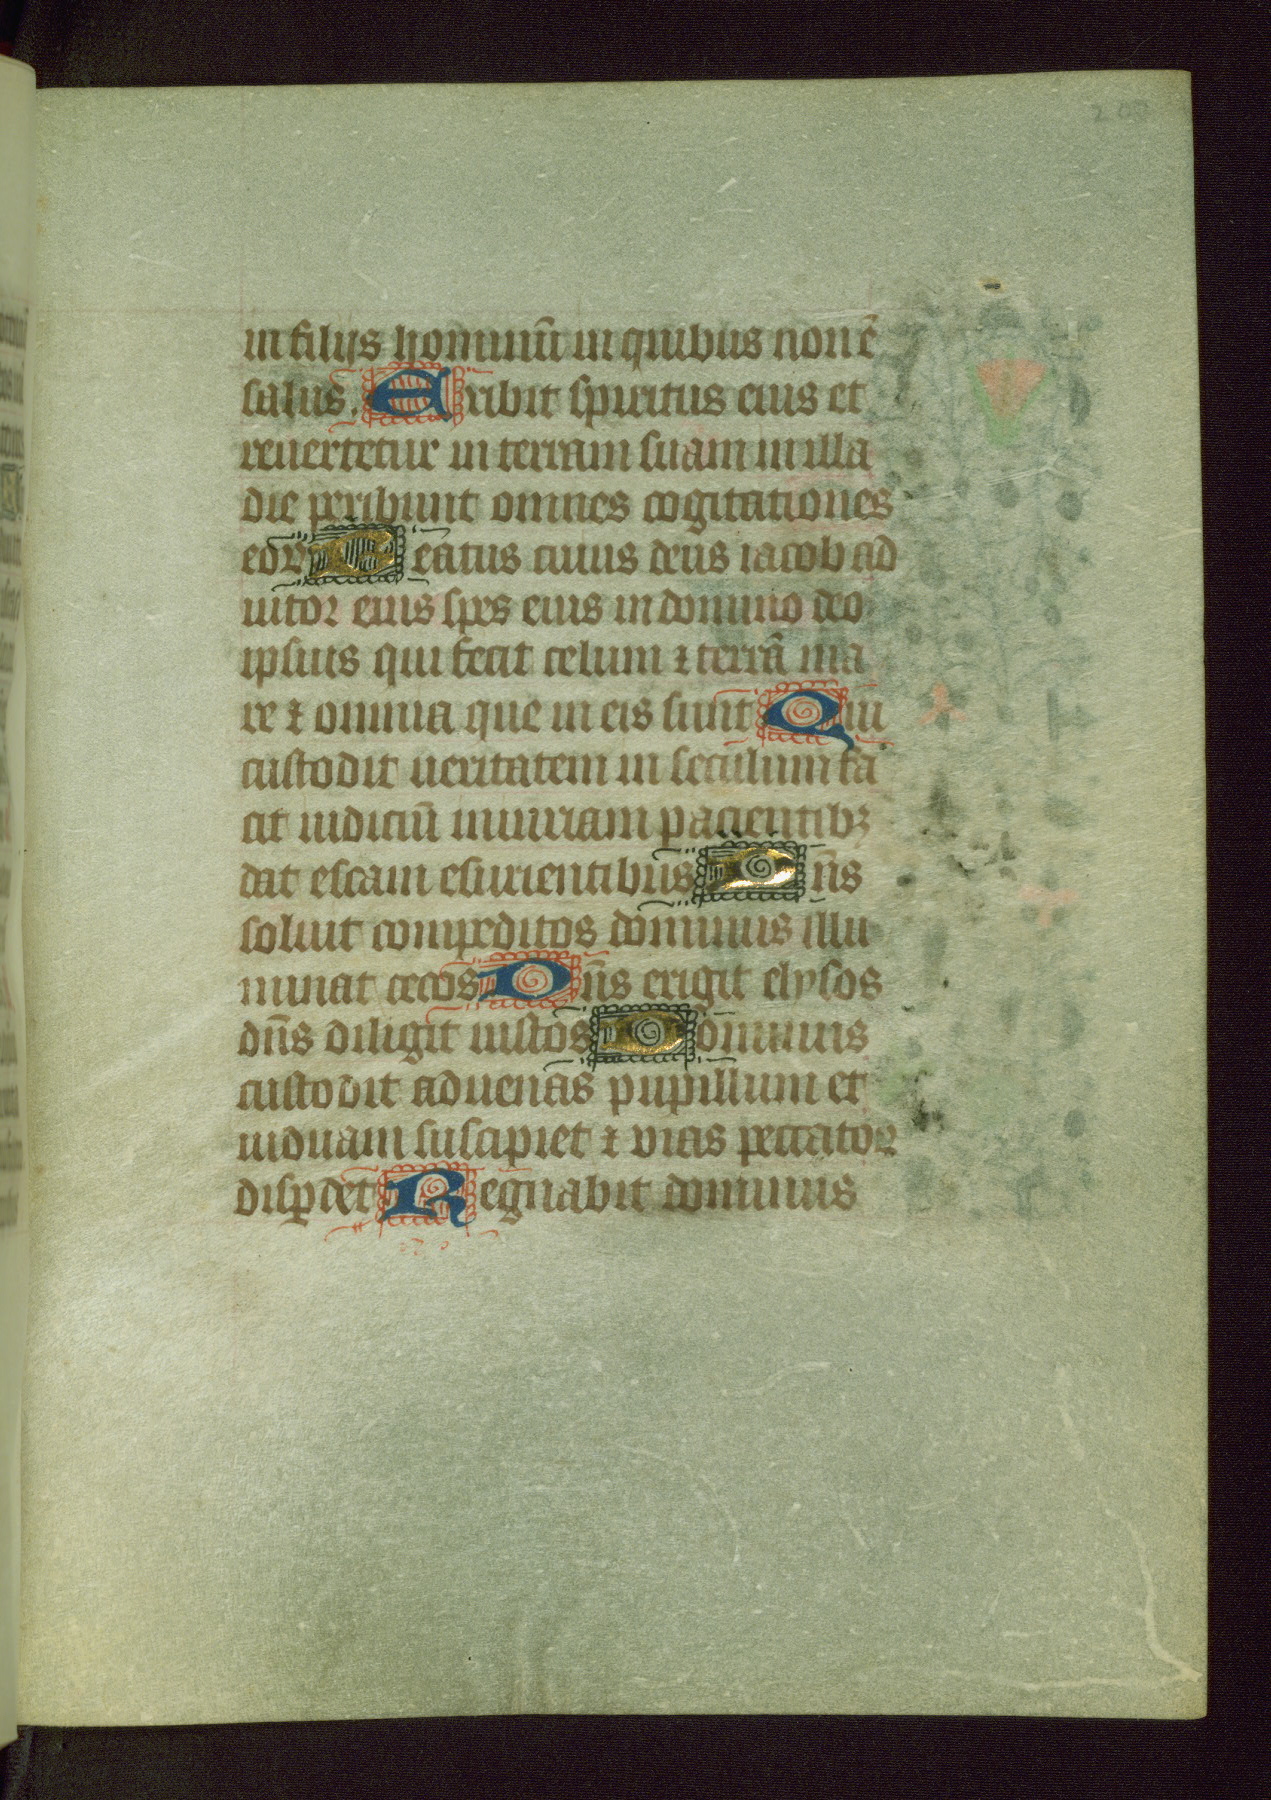 in filijs hominū in quibus non ē
salus. Exibit spiritus eius et
reuertetur in terram suam in illa
die peribunt omnes cogitationes
eoꝝ Beatus cuius deus iacob ad
iutor eius spes eius in domino deo
ipsius qui fecit celum ⁊ terrā ma
re ⁊ omnia que in eis sunt Qui
custodit ueritatem in seculum fa
cit iudiciū iniuriam pacientibꝫ
dat escam esurientibus Dn̄s
soluit compeditos dominus illu
minat cecos Dn̄s erigit elysos
dn̄s diligit iustos Dominus
custodit aduenas pupillum et
uiduam suscipiet ⁊ vias peccatoꝝ
disꝑdet Regnabit dominus